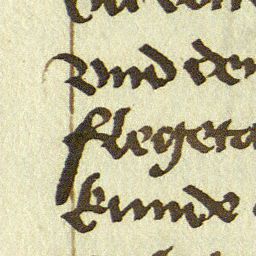 Vnd den
flegeta
kunde